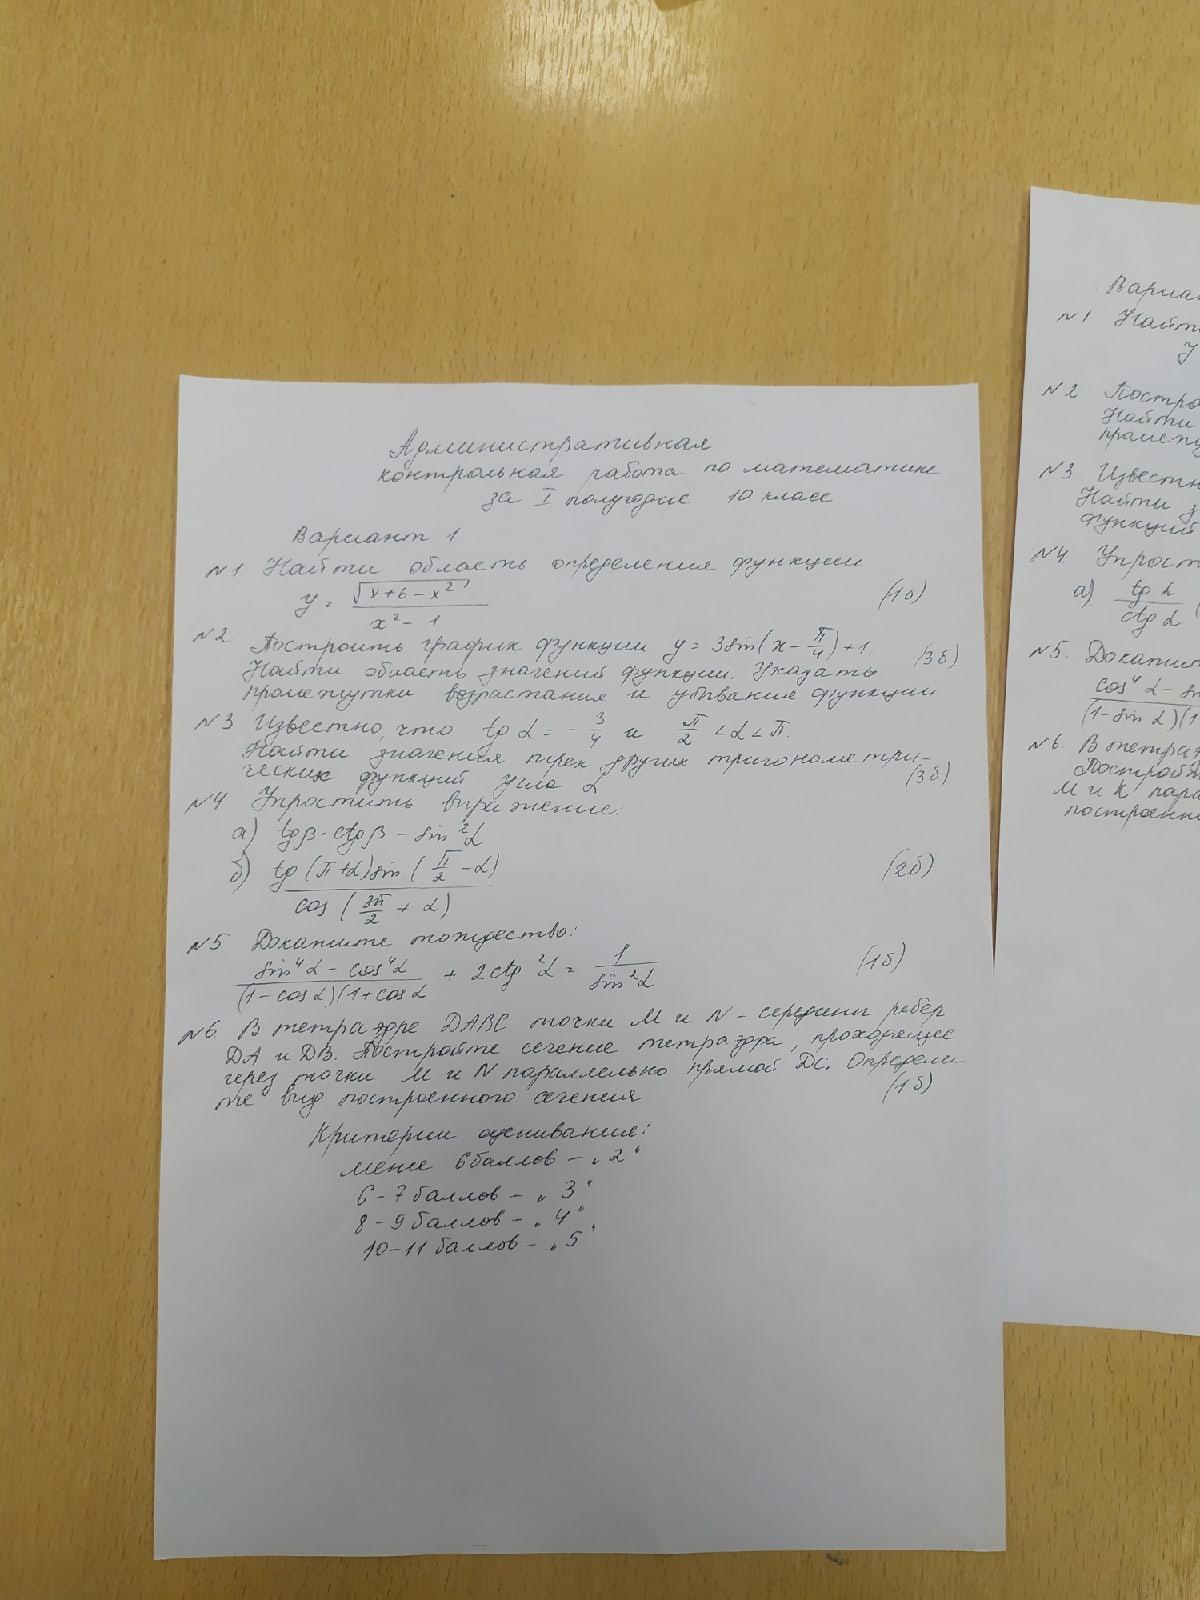 Административная
контрольная работа по математике
за I полугодие 10 класс
Вариант 1
N1 Найти область определения функции
y = √(x+6-x²) / (x²-1) (1б)
N2 Построить график функции y = 3sin(x - π/4)+1
Найти область значений функции. Указать (3б)
промежутки возрастания и убывания функции
N3 Известно, что tg α = -3/4 и π/2 < α < π.
Найти значения трех других тригонометри-
ческих функций угла α (3б)
N4 Упростить выражение:
а) tgβ·ctgβ - sin²α
б) tg(π+α)sin(π/2 - α) / cos(3π/2 + α) (2б)
N5 Докажите тождество:
(sin⁴α - cos⁴α) / (1-cosα)(1+cosα + 2ctg²α = 1/sin²α (1б)
N6. В тетраэдре DABC точки M и N - середины ребер
DA и DB. Постройте сечение тетраэдра, проходящее
через точки M и N параллельно прямой DC. Определи-
те вид построенного сечения (1б)
Критерии оценивания:
менее 6 баллов - „2“
6-7 баллов - „3“
8-9 баллов - „4“
10-11 баллов - „5“
Вариан
N1 Найти
y
N2 Постро
Найти
промежу
N3 Известн
Найти з
функций
N4 Упрост
а) tg α / ctg α (
N5. Докажит
cos⁴α - si / (1-sin α)(1
N6. В тетра
Постройт
M и K пара
построенн